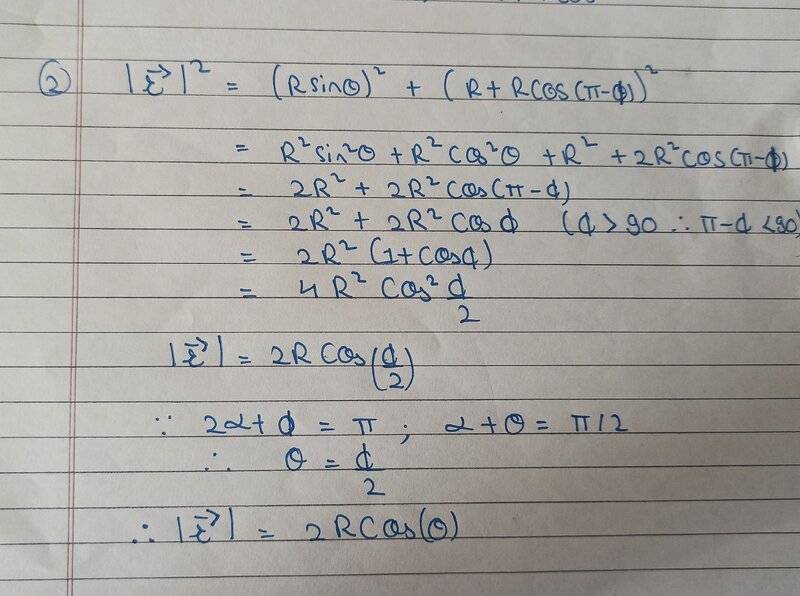 ② |r⃗|² = (R sinθ)² + (R + R cos(π-ϕ))²
= R² sin²θ + R² cos²θ + R² + 2R² cos(π-ϕ)
= 2R² + 2R² cos(π-ϕ)
= 2R² + 2R² cos ϕ (ϕ > 90 ∴ π-ϕ < 90)
= 2R² (1+cosϕ)
= 4R² cos² ϕ/2
|r⃗| = 2R cos(ϕ/2)
∵ 2α + ϕ = π ; α + θ = π/2
∴ θ = ϕ/2
∴ |r⃗| = 2R cos(θ)